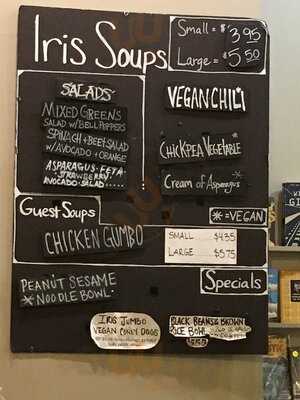 Iris Soups
Small = $3.95
Large = $5.50
SALADS
MIXED GREENS
SALAD W/BELL PEPPERS
SPINACH + BEET SALAD
W/AVOCADO + ORANGE
ASPARAGUS-FETA-
STRAWBERRY
AVOCADO SALAD....
VEGAN CHILI
CHICKPEA VEGETABLE *
Cream of Asparagus *
* = VEGAN
Guest Soups
CHICKEN GUMBO
SMALL $4.35
LARGE $5.75
Specials
PEANUT SESAME
* NOODLE BOWL
IRIS JUMBO
VEGAN CORN DOGS
BLACK BEANS & BROWN
RICE BOWL